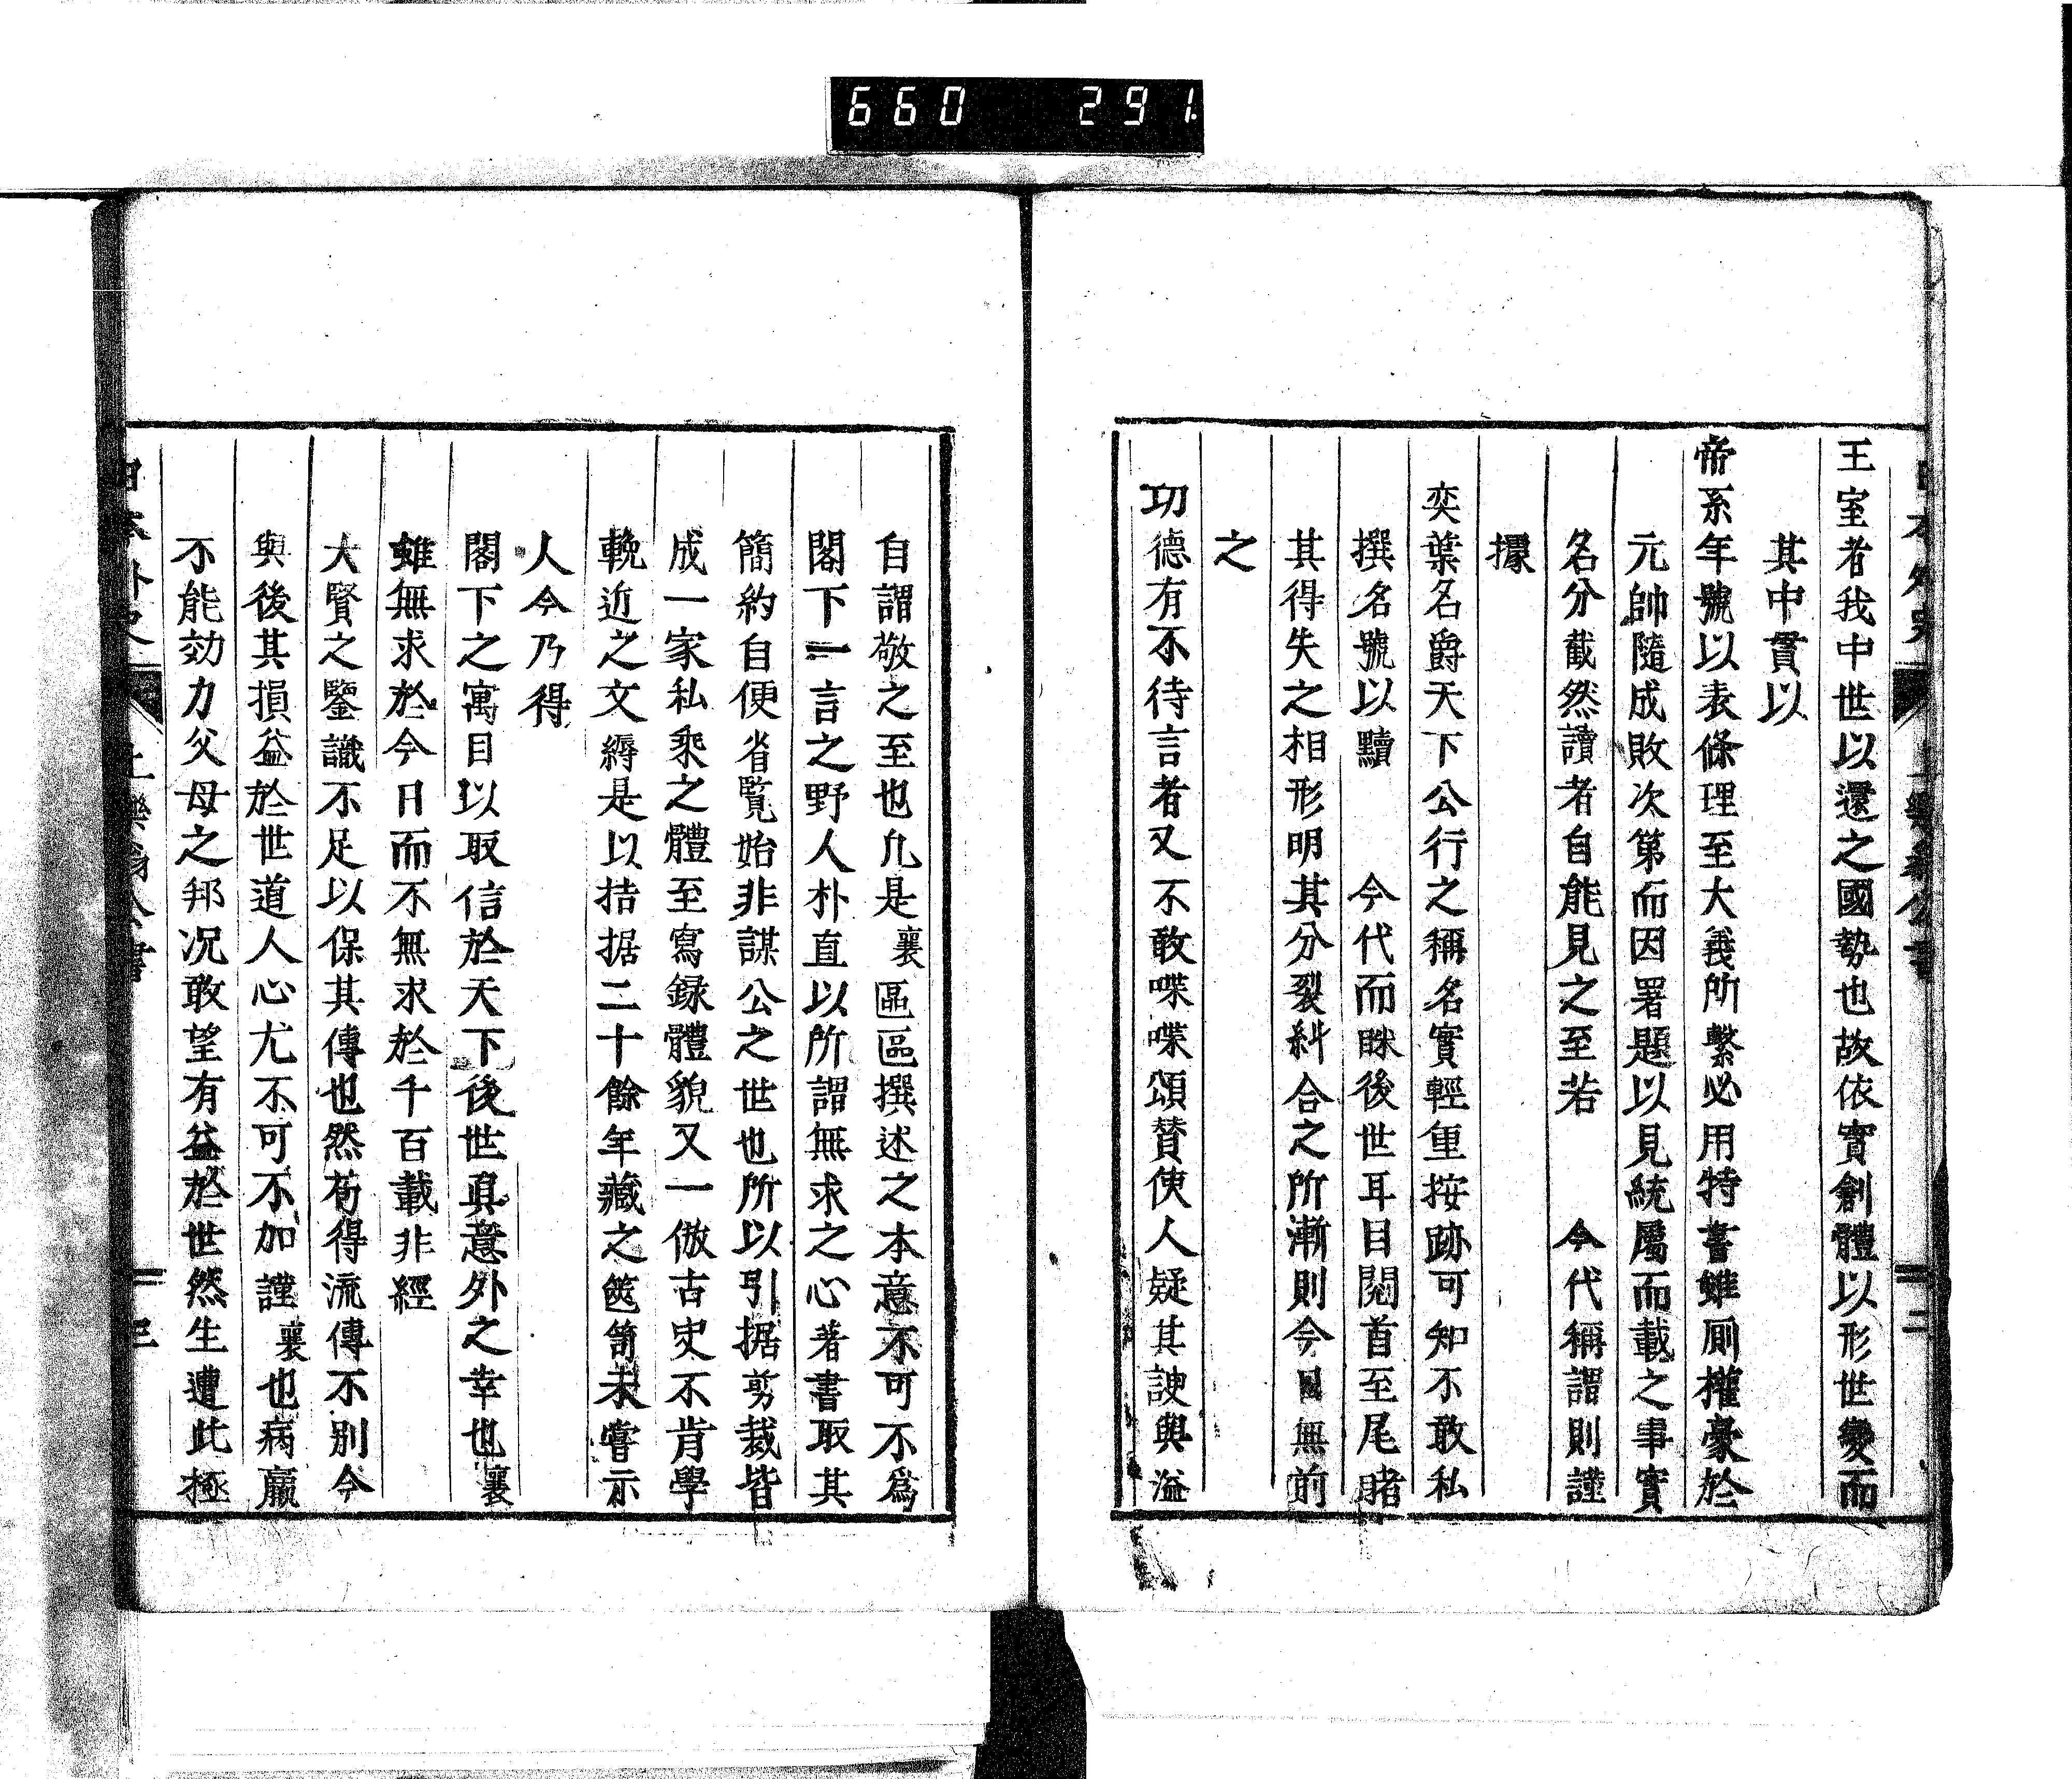 660 291
王室者我中世以還之國勢也故依實創體以形世變而
其中貫以
帝系年號以表條理至大義所繫必用特書雖厠權豪於
元帥隨成敗次第而因署題以見統屬而載之事實
名分截然讀者自能見之至若 今代稱謂則謹
據
奕葉名爵天下公行之稱名實輕重按跡可知不敢私
撰名號以黷 今代而眯後世耳目閱首至尾睹
其得失之相形明其分裂糾合之所漸則今日無前
之
功德有不待言者又不敢喋喋頌賛使人疑其諛與溢
自謂敬之至也凡是襄區區撰述之本意不可不爲
閣下一言之野人朴直以所謂無求之心著書取其
簡約自便省覧始非謀公之世也所以引据剪裁皆
成一家私乘之體至寫録體貌又一倣古史不肯學
輓近之文縟是以拮据二十餘年藏之篋笥未嘗示
人今乃得
閣下之寓目以取信於天下後世真意外之幸也襄
雖無求於今日而不無求於千百載非經
大賢之鑒識不足以保其傳也然苟得流傳不別今
與後其損益於世道人心尤不可不加謹襄也病羸
不能効力父母之邦况敢望有益於世然生遭此極
日本外史 上樂翁公書 三